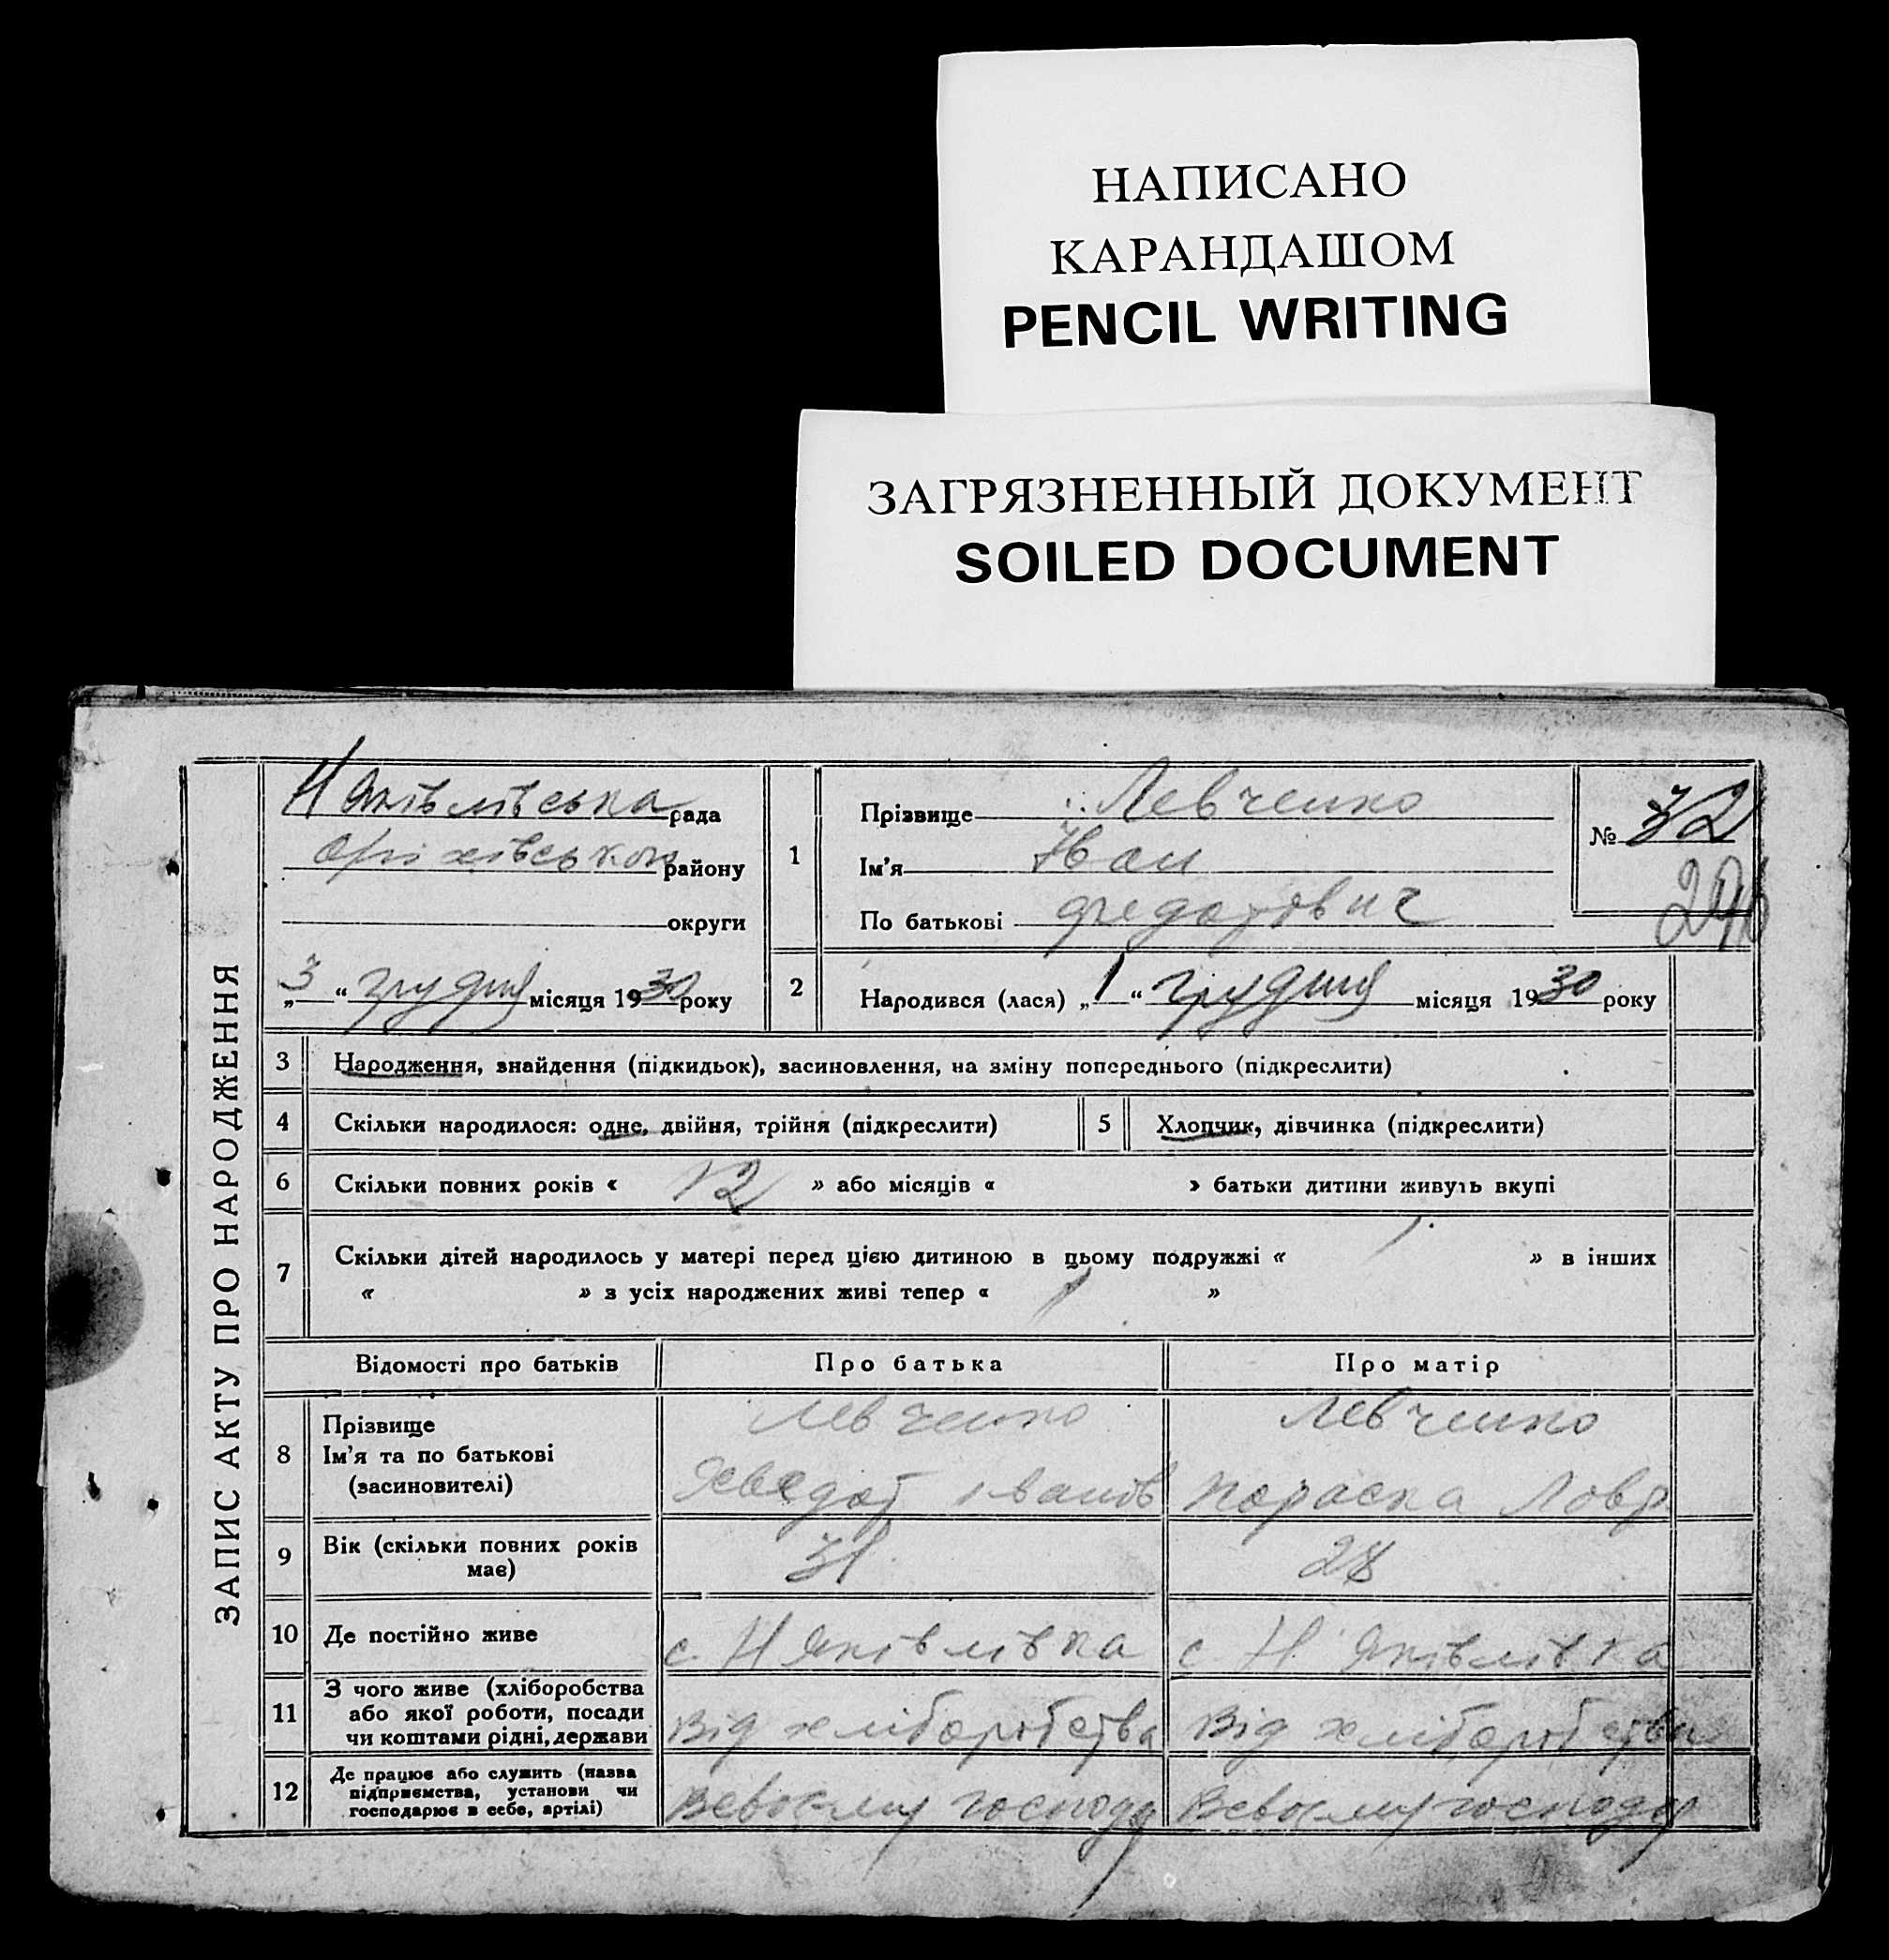 НАПИСАНО
КАРАНДАШОМ
PENCIL WRITING
ЗАГРЯЗНЕННЫЙ ДОКУМЕНТ
SOILED DOCUMENT
ЗАПИС АКТУ ПРО НАРОДЖЕННЯ
Н Яківлівська рада
Оріхівського району
округи
„3“ грудня місяця 1930 року
1
Прізвище Левченко
Ім'я Іван
По батькові Федотович
№ 32
2
Народився (лася) „1“ грудня місяця 1930 року
3 Народження, знайдення (підкидьок), засиновлення, на зміну попереднього (підкреслити)
4 Скільки народилося: одне, двійня, трійня (підкреслити) 5 Хлопчик, дівчинка (підкреслити)
6 Скільки повних років « 12 » або місяців « » батьки дитини живуть вкупі
7 Скільки дітей народилось у матері перед цією дитиною в цьому подружжі « 1 » в інших
« » з усіх народжених живі тепер « 1 »
Відомості про батьків Про батька Про матір
8 Прізвище
Ім'я та по батькові
(засиновителі)
Левченко Левченко
Іванов Параска Лавр
9 Вік (скільки повних років
має)
31 28
10 Де постійно живе с. Н Яківлівка с. Н Яківлівка
11 З чого живе (хліборобства
або якої роботи, посади
чи коштами рідні, держави
Від хліборобства Від хліборобства
12 Де працює або служить (назва
підприємства, установи чи
господарює в себе, артілі)
Всвоєму господ Всвоєму господар